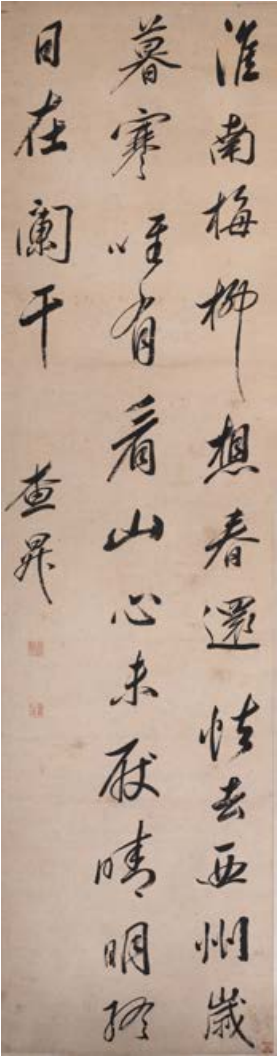 淮南梅柳想春還怯去西州歲
暮寒唯有看山心未厭晴明終
日在闌干
查昇